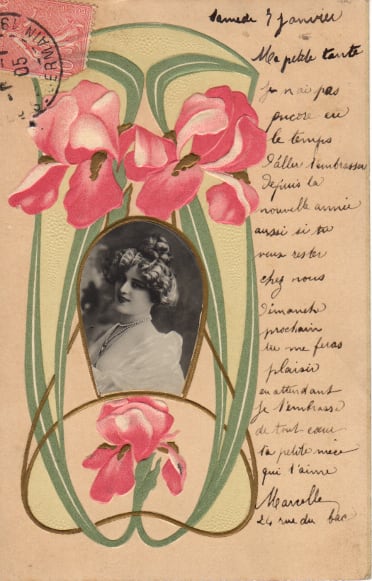 Samedi 7 janvier
Ma petite tante
Je n'ai pas
encore eu
le temps
d'aller t'embrasser
depuis la
nouvelle année
aussi si tu
veux rester
chez nous
dimanche
prochain
tu me feras
plaisir
en attendant
je t'embrasse
de tout cœur
ta petite nièce
qui t'aime
Marcelle
24 rue du bac
GERMAIN
05